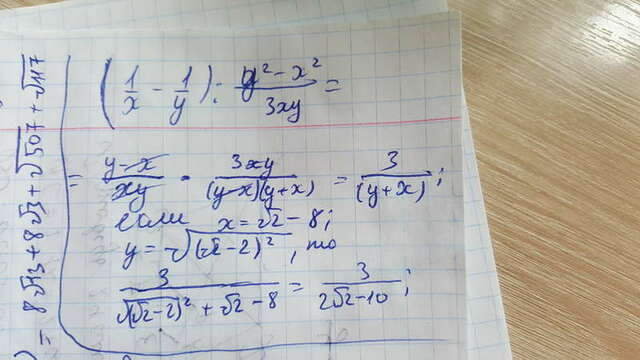 (1/x - 1/y) : (y² - x²)/(3xy) =
= (y - x)/(xy) · (3xy)/((y-x)(y+x)) = 3/(y+x);
если x = √2 - 8;
y = √((√2 - 2)²), то
3/(√((√2-2)²) + √2 - 8) = 3/(2√2 - 10);
) = 8√13 + 8√3 + √507 + √117